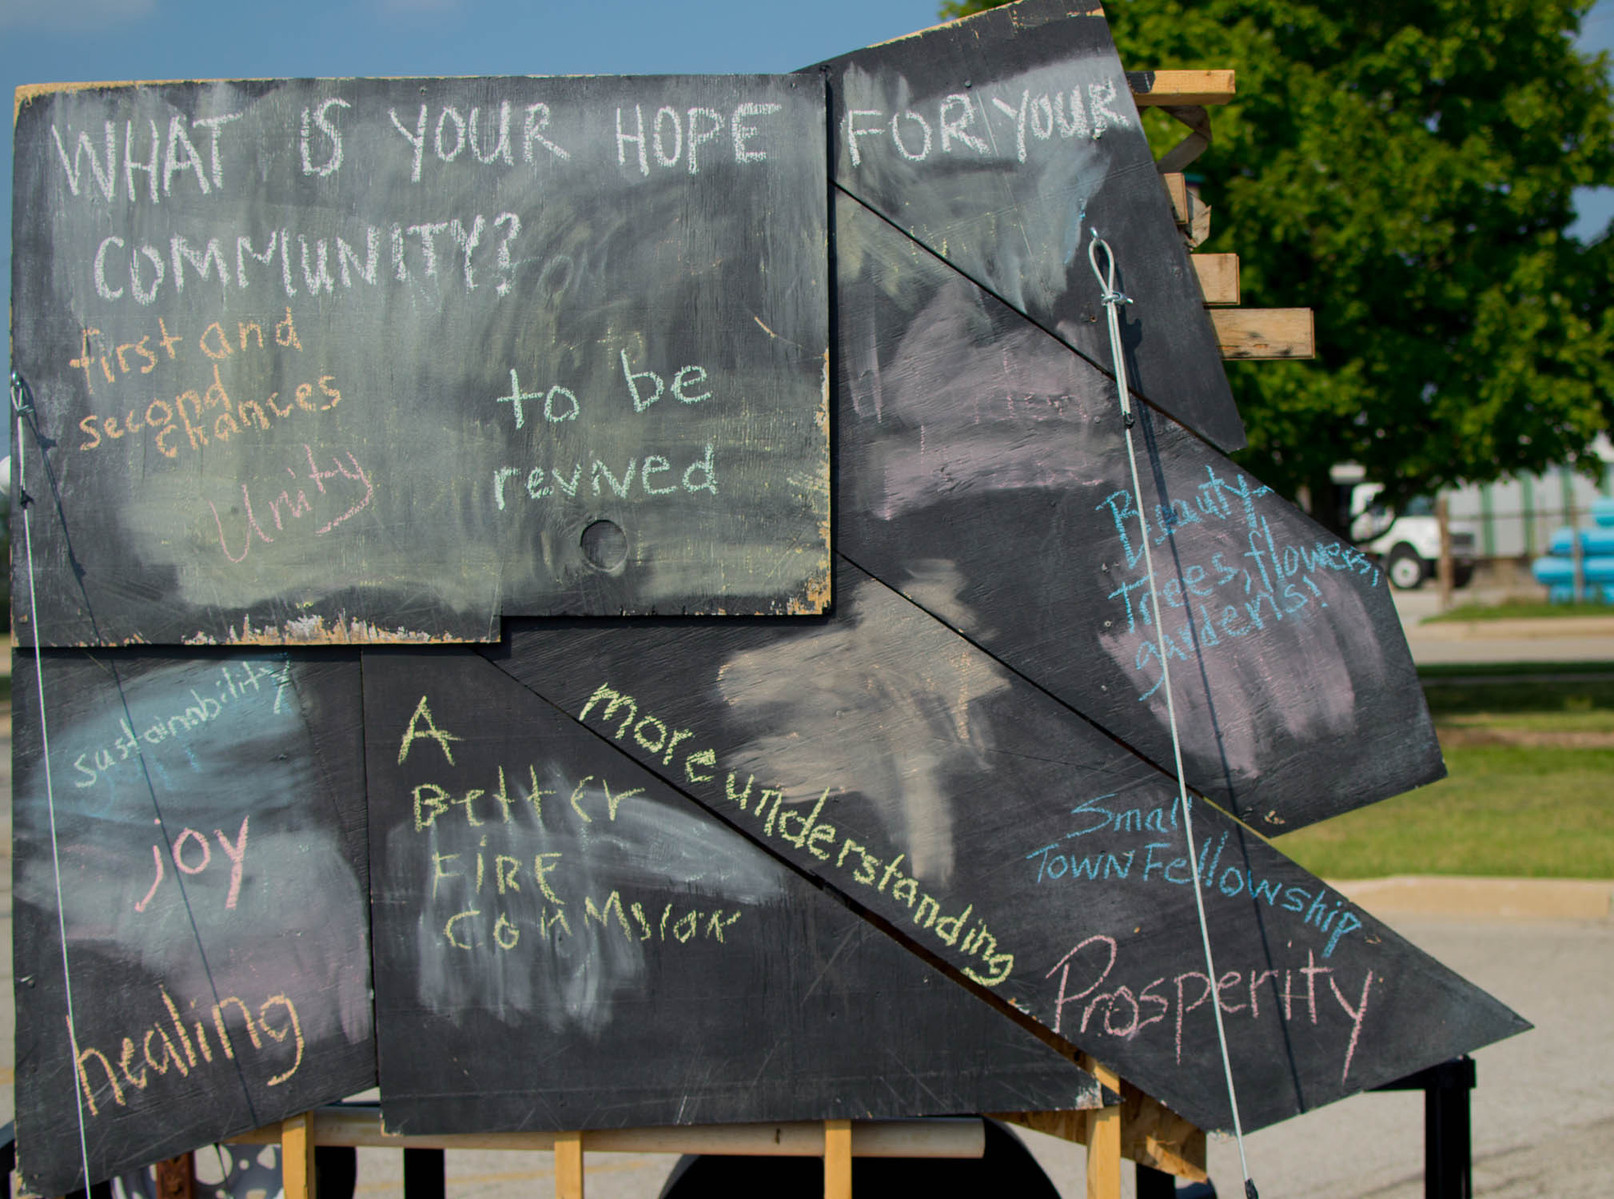 WHAT IS YOUR HOPE FOR YOUR
COMMUNITY?
first and
second
chances
Unity
to be
revived
Beauty
trees, flowers,
gardens!
sustainability
joy
healing
A
Better
FIRE
COMMSION
more understanding
Small
TOWN Fellowship
Prosperity